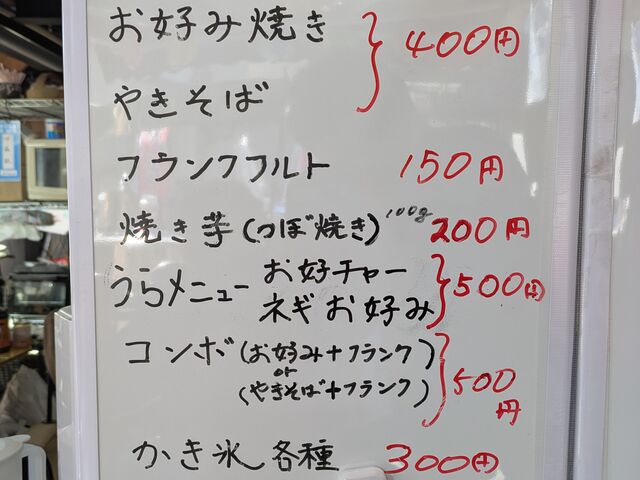 お好み焼き 400円
やきそば
フランクフルト 150円
焼き芋(つぼ焼き) 100g 200円
うらメニュー お好チャー 500円
ネギお好み
コンボ(お好み+フランク) 500円
or
(やきそば+フランク)
かき氷各種 300円